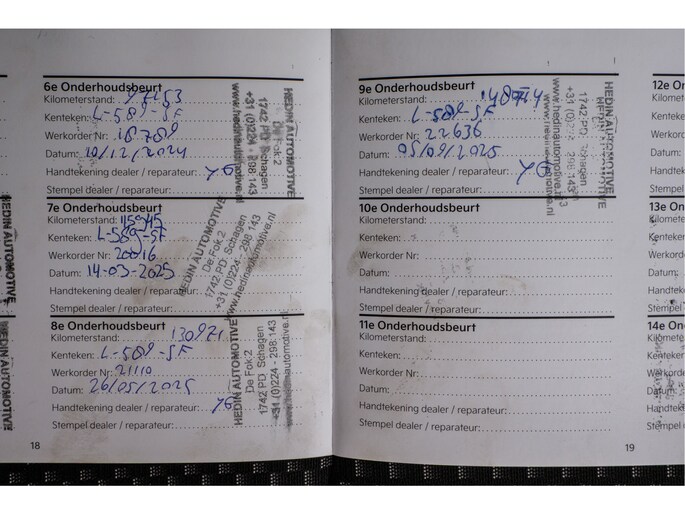 6e Onderhoudsbeurt
Kilometerstand:
Kenteken: L-589-SF
Werkorder Nr: 18789
Datum: 10/12/2024
Handtekening dealer / reparateur: YG
Stempel dealer / reparateur:
HEDIN AUTOMOTIVE
De Fok 2
1742 PD Schagen
+31 (0)224 - 298 143
www.hedinautomotive.nl
7e Onderhoudsbeurt
Kilometerstand: 115945
Kenteken: L-589-SF
Werkorder Nr: 20016
Datum: 14-03-2025
Handtekening dealer / reparateur:
Stempel dealer / reparateur:
HEDIN AUTOMOTIVE
De Fok 2
1742 PD Schagen
+31 (0)224 - 298 143
www.hedinautomotive.nl
8e Onderhoudsbeurt
Kilometerstand: 130971
Kenteken: L-589-SF
Werkorder Nr: 21110
Datum: 26/05/2025
Handtekening dealer / reparateur: YG
Stempel dealer / reparateur:
HEDIN AUTOMOTIVE
De Fok 2
1742 PD Schagen
+31 (0)224 - 298 143
www.hedinautomotive.nl
HEDIN AUTOMOTIVE
HEDIN AUTOMOTIVE
18
9e Onderhoudsbeurt
Kilometerstand:
Kenteken: L-589-SF
Werkorder Nr: 22636
Datum: 05/09/2025
Handtekening dealer / reparateur: YG
Stempel dealer / reparateur:
HEDIN AUTOMOTIVE
1742 PD Schagen
www.hedinautomotive.nl
10e Onderhoudsbeurt
Kilometerstand:
Kenteken:
Werkorder Nr:
Datum:
Handtekening dealer / reparateur:
Stempel dealer / reparateur:
11e Onderhoudsbeurt
Kilometerstand:
Kenteken:
Werkorder Nr:
Datum:
Handtekening dealer / reparateur:
Stempel dealer / reparateur:
19
12e On
Kilomete
Kenteke
Werkord
Datum:
Handtek
Stempel
13e On
Kilomete
Kenteke
Werkord
Datum:
Handtek
Stempel
14e On
Kilomete
Kenteke
Werkord
Datum:
Handtek
Stempel